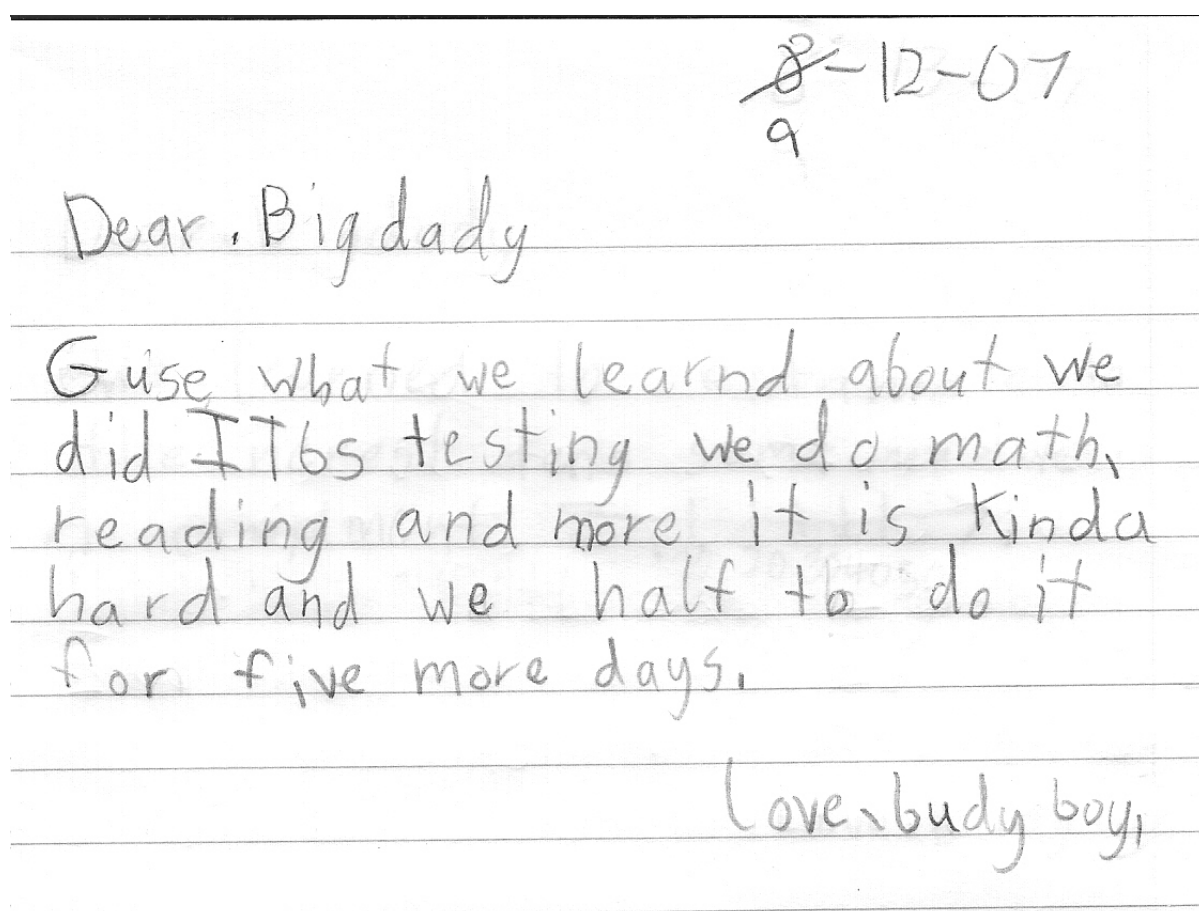 8-12-07
9
Dear, Big dady
Guse what we learnd about we
did ITbs testing we do math,
reading and more it is kinda
hard and we half to do it
for five more days.
Love, budy boy,